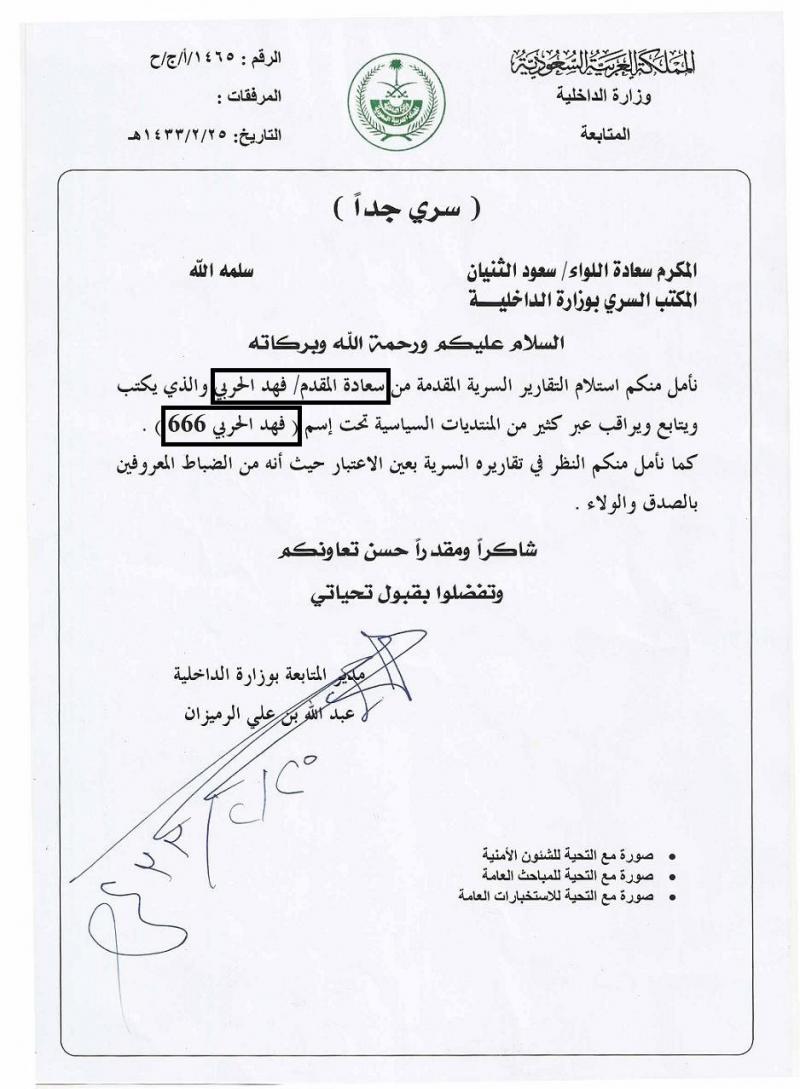 المملكة العربية السعودية
وزارة الداخلية
المتابعة
الرقم : ١٤٦٥/أ/ج/ح
المرفقات :
التاريخ: ١٤٣٣/٢/٢٥هـ
( سري جداً )
المكرم سعادة اللواء/ سعود الثنيان سلمه الله
المكتب السري بوزارة الداخليـــة
السلام عليكم ورحمة الله وبركاته
نأمل منكم استلام التقارير السرية المقدمة من سعادة المقدم/ فهد الحربي والذي يكتب
ويتابع ويراقب عبر كثير من المنتديات السياسية تحت إسم ( فهد الحربي 666 ) .
كما نأمل منكم النظر في تقاريره السرية بعين الاعتبار حيث أنه من الضباط المعروفين
بالصدق والولاء .
شاكراً ومقدراً حسن تعاونكم
وتفضلوا بقبول تحياتي
مدير المتابعة بوزارة الداخلية
عبد الله بن علي الرميزان
• صورة مع التحية للشئون الأمنية
• صورة مع التحية للمباحث العامة
• صورة مع التحية للاستخبارات العامة